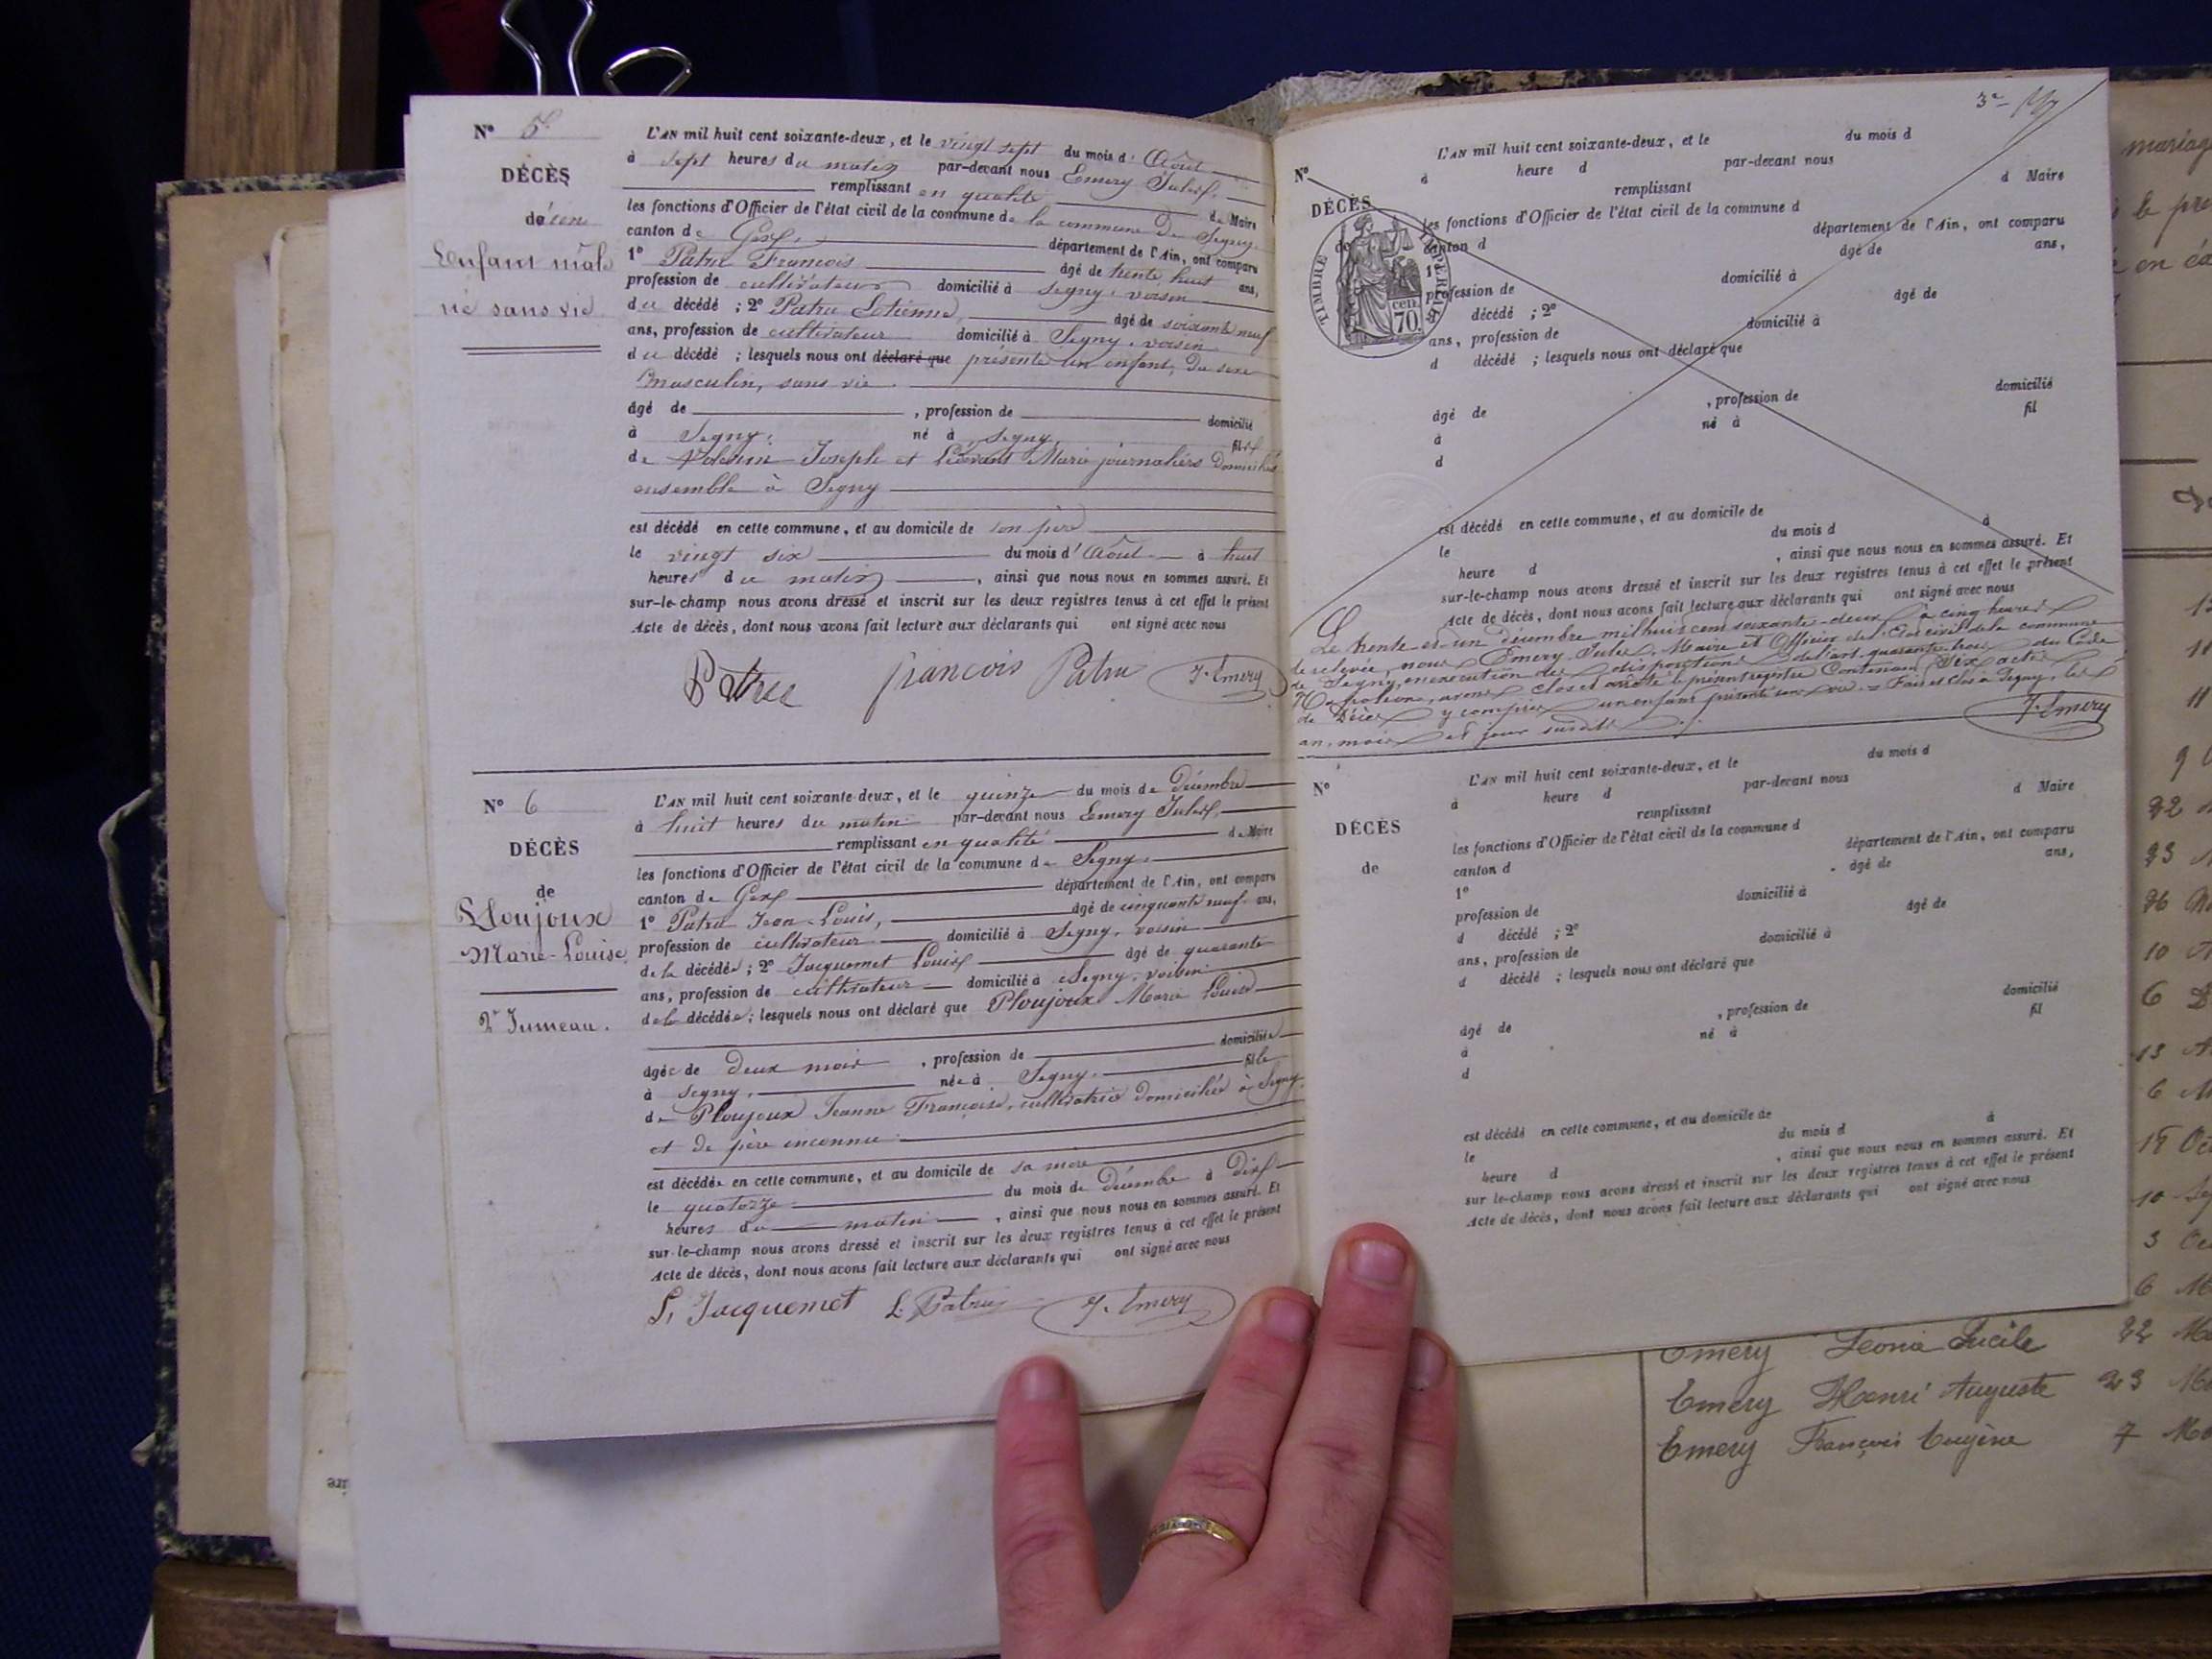 N° 5
DÉCÈS
de un
Enfant mâle
né sans vie
L'AN mil huit cent soixante-deux, et le vingt sept du mois d'Août
à sept heures du matin par-devant nous Emery Jules,
remplissant en qualité de Maire
les fonctions d'Officier de l'état civil de la commune de la commune de Segny
canton de Gex, département de l'Ain, ont comparu
1° Patru François âgé de trente huit ans,
profession de cultivateur domicilié à Segny, voisin
du décédé ; 2° Patru Etienne, âgé de soixante neuf
ans, profession de cultivateur domicilié à Segny, voisin
du décédé ; lesquels nous ont déclaré que présenté un enfant, du sexe
masculin, sans vie.
âgé de , profession de domicilié
à Segny, né à Segny fils
de Joseph et Marie journaliers domiciliés
ensemble à Segny
est décédé en cette commune, et au domicile de son père
le vingt six du mois d'Août à huit
heures du matin , ainsi que nous nous en sommes assuré. Et
sur-le-champ nous avons dressé et inscrit sur les deux registres tenus à cet effet le présent
Acte de décès, dont nous avons fait lecture aux déclarants qui ont signé avec nous
Patru françois Patru J. Emery
N° 6
DÉCÈS
de
Ploujoux
Marie-Louise,
2e Jumeau.
L'AN mil huit cent soixante-deux, et le quinze du mois de Décembre
à huit heures du matin par-devant nous Emery Jules,
remplissant en qualité de Maire
les fonctions d'Officier de l'état civil de la commune de Segny
canton de Gex département de l'Ain, ont comparu
1° Patru Jean-Louis, âgé de cinquante neuf ans,
profession de cultivateur domicilié à Segny, voisin
de la décédée ; 2° Jacquemet Louis âgé de quarante
ans, profession de cultivateur domicilié à Segny, voisin
de la décédée ; lesquels nous ont déclaré que Ploujoux Marie Louise
âgée de deux mois , profession de domiciliée
à Segny, née à Segny fille
de Ploujoux Jeanne Françoise, cultivatrice domiciliée à Segny
et de père inconnu
est décédée en cette commune, et au domicile de sa mère
le quatorze du mois de Décembre à dix
heures du matin , ainsi que nous nous en sommes assuré. Et
sur-le-champ nous avons dressé et inscrit sur les deux registres tenus à cet effet le présent
Acte de décès, dont nous avons fait lecture aux déclarants qui ont signé avec nous
L. Jacquemet L. Patru J. Emery
3e
N°
DÉCÈS
de
TIMBRE IMPÉRIAL
70. cen.
L'AN mil huit cent soixante-deux, et le du mois d
à heure d par-devant nous
remplissant d Maire
les fonctions d'Officier de l'état civil de la commune d
canton d département de l'Ain, ont comparu
1° âgé de ans,
profession de domicilié à
d décédé ; 2° âgé de
ans, profession de domicilié à
d décédé ; lesquels nous ont déclaré que
âgé de , profession de domicilié
à né à fil
d
est décédé en cette commune, et au domicile de
le du mois d à
heure d , ainsi que nous nous en sommes assuré. Et
sur-le-champ nous avons dressé et inscrit sur les deux registres tenus à cet effet le présent
Acte de décès, dont nous avons fait lecture aux déclarants qui ont signé avec nous
Le trente et un décembre mil huit cent soixante-deux à cinq heures
de relevée, nous Emery Jules, Maire et Officier de l'Etat civil de la commune
de Segny, en exécution des dispositions de l'art. quarante trois du Code
Napoléon, avons clos et arrêté le présent registre contenant six actes
de Décès y compris un enfant présenté sans vie. = Fait et clos à Segny, les
an, mois et jour susdits.
J. Emery
N°
DÉCÈS
de
L'AN mil huit cent soixante-deux, et le du mois d
à heure d par-devant nous
remplissant d Maire
les fonctions d'Officier de l'état civil de la commune d
canton d département de l'Ain, ont comparu
1° âgé de ans,
profession de domicilié à
d décédé ; 2° âgé de
ans, profession de domicilié à
d décédé ; lesquels nous ont déclaré que
âgé de , profession de domicilié
à né à fil
d
est décédé en cette commune, et au domicile de
le du mois d à
heure d , ainsi que nous nous en sommes assuré. Et
sur le-champ nous avons dressé et inscrit sur les deux registres tenus à cet effet le présent
Acte de décès, dont nous avons fait lecture aux déclarants qui ont signé avec nous
Emery Léonie Lucile 22
Emery Henri Auguste 23
Emery François Eugène 7